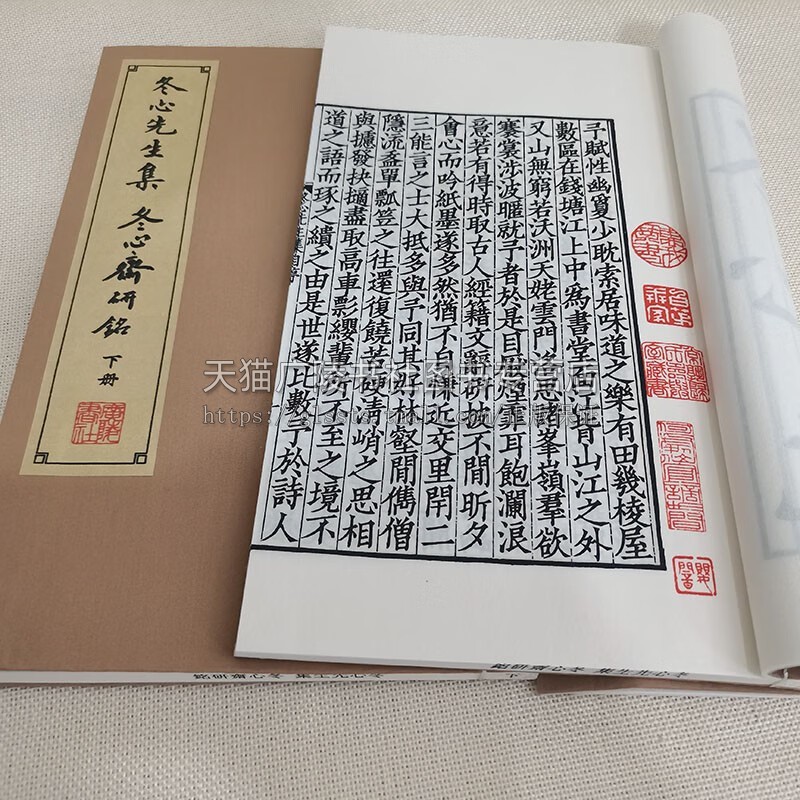 冬心先生集 冬心齋研銘 下册
廣陵書社
予賦性幽夐少耽索居味道之樂有田幾棱屋
數區在錢塘江上中爲書堂面江背山江之外
又山無窮若沃洲天姥雲門洛思諸峯嶺羣欲
褰裳涉波暱就予者於是目厭煙霏耳飽瀾浪
意若有得時取古人經籍文辭研披不閒昕夕
會心而吟紙墨遂多然猶不自慊近交里閈二
三能言之士大抵多與予同其好林壑閒儁僧
隱流盋單瓢笠之往還復饒苦硎淸峭之思相
與攄發抉擿盡取高車影纓輩所不至之境不
道之語而琢之繢之由是世遂比數予於詩人
天猫广陵书社图书专营店
冬心先生集 冬心齋研銘
下